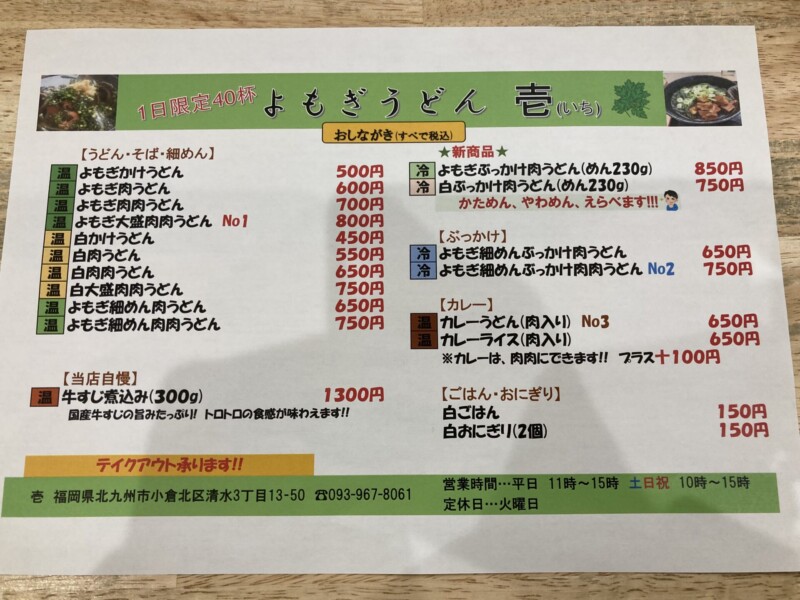 1日限定40杯 よもぎうどん 壱(いち)
おしながき(すべて税込)
【うどん・そば・細めん】
温 よもぎかけうどん 500円
温 よもぎ肉うどん 600円
温 よもぎ肉肉うどん 700円
温 よもぎ大盛肉肉うどん No1 800円
温 白かけうどん 450円
温 白肉うどん 550円
温 白肉肉うどん 650円
温 白大盛肉肉うどん 750円
温 よもぎ細めん肉うどん 650円
温 よもぎ細めん肉肉うどん 750円
【当店自慢】
温 牛すじ煮込み(300g) 1300円
国産牛すじの旨みたっぷり! トロトロの食感が味わえます!!
★新商品★
冷 よもぎぶっかけ肉うどん(めん230g) 850円
冷 白ぶっかけ肉うどん(めん230g) 750円
かためん、やわめん、えらべます!!!
【ぶっかけ】
冷 よもぎ細めんぶっかけ肉うどん 650円
冷 よもぎ細めんぶっかけ肉肉うどん No2 750円
【カレー】
温 カレーうどん(肉入り) No3 650円
温 カレーライス(肉入り) 650円
※カレーは、肉肉にできます!! プラス+100円
【ごはん・おにぎり】
白ごはん 150円
白おにぎり(2個) 150円
テイクアウト承ります!!
壱 福岡県北九州市小倉北区清水3丁目13-50 ☎093-967-8061
営業時間…平日 11時～15時 土日祝 10時～15時
定休日…火曜日